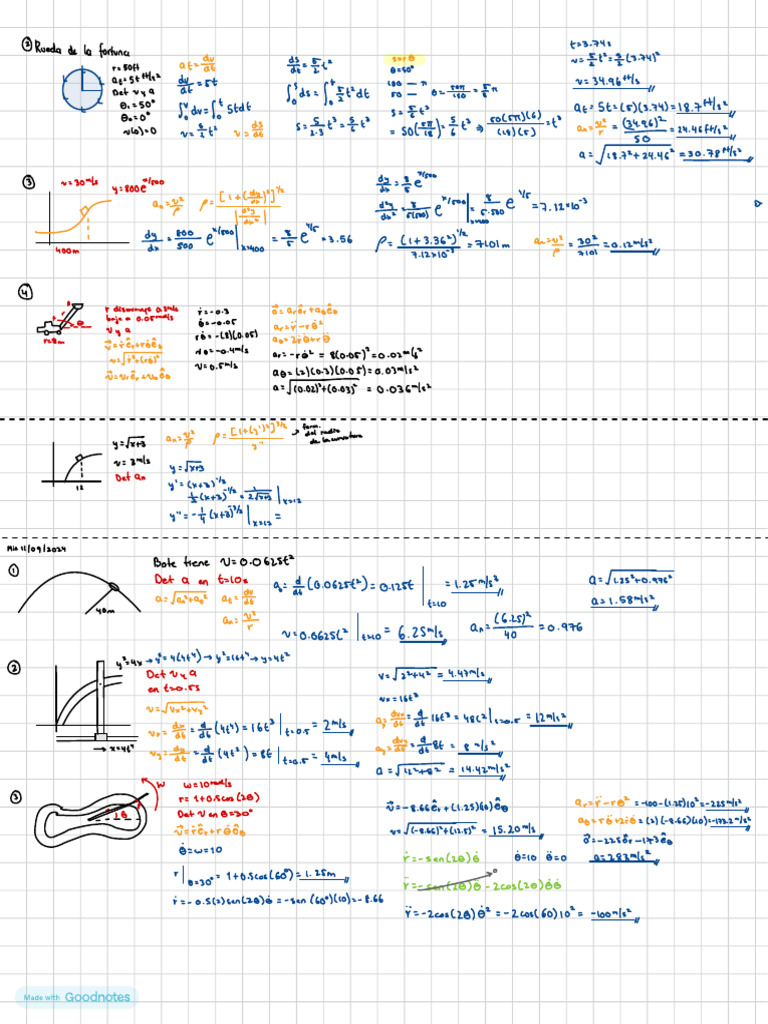 ② Rueda de la fortuna
r=50ft
at=5t ft/s²
Det v y a
θ₁=50°
θ₀=0°
v(0)=0
at=dv/dt
dv/dt=5t
∫₀ᵛdv=∫₀ᵗ5tdt
v=5/2 t² v=ds/dt
ds/dt=5/2 t²
∫₀ˢds=∫₀ᵗ5/2 t²dt
s=5/2·3 t³=5/6 t³
s=rθ
θ=50°
180 — π
50 — θ=50π/180=5/18 π
s=5/6 t³
=50(5π/18)=5/6 t³ ⇒ 50(5π)(6)/(18)(5)=t³
t=3.74s
v=5/2 t²=5/2 (3.74)²
v=34.96ft/s
at=5t=(5)(3.74)=18.7ft/s²
an=v²/r=(34.96)²/50=24.46ft/s²
a=√18.7²+24.46²=30.78ft/s²
③
v=30m/s
y=800e^x/500
400m
an=v²/ρ ρ=[1+(dy/dx)²]^3/2 / |d²y/dx²|
dy/dx=800/500 e^x/500|x=400=8/5 e^4/5=3.56
dy/dx=8/5 e^x/500
d²y/dx²=8/5(500) e^x/500|x=400=8/5·500 e^4/5=7.12×10⁻³
ρ=(1+3.36²)^3/2 / 7.12×10⁻³=7101m
an=v²/ρ=30²/7101=0.12m/s²
④
r=8m
θ
r disminuye 0.3m/s
baja a 0.05rad/s
v y a
v⃗=ṙêr+rθ̇êθ
v=√ṙ²+(rθ̇)²
v⃗=vrêr+vθêθ
ṙ=-0.3
θ̇=-0.05
rθ̇=-(8)(0.05)
vθ=-0.4m/s
v=0.5m/s
a⃗=arêr+aθêθ
ar=r̈-rθ̇²
aθ=2ṙθ̇+rθ̈
ar=-rθ̇²=8(0.05)²=0.02m/s²
aθ=(2)(0.3)(0.05)=0.03m/s²
a=√(0.02)²+(0.03)²=0.036m/s²
12
y=√x+3
v=3m/s
Det an
an=v²/ρ ρ=[1+(y')²]^3/2 / y''
→ form. del radio de la curvatura
y=√x+3
y'=(x+3)^-1/2
1/2(x+3)^-1/2=1/2√x+3|x=12
y''=-1/4(x+3)^-3/2|x=12=
Mie 11/09/2024
①
40m
Bote tiene v=0.0625t²
Det a en t=10s
a=√an²+at² at=dv/dt
an=v²/r
at=d/dt(0.0625t²)=0.125t|t=10=1.25m/s²
v=0.0625t²|t=10=6.25m/s
an=(6.25)²/40=0.976
a=√1.25²+0.976²
a=1.58m/s²
②
→x=4t⁴
y²=4x→y²=4(4t⁴)→y²=16t⁴→y=4t²
Det v y a
en t=0.5s
v=√vx²+vy²
vx=dx/dt=d/dt(4t⁴)=16t³|t=0.5=2m/s
vy=dy/dt=d/dt(4t²)=8t|t=0.5=4m/s
v=√2²+4²=4.47m/s
vx=16t³
ax=dvx/dt=d/dt 16t³=48t²|t=0.5=12m/s²
ay=dvy/dt=d/dt 8t=8m/s²
a=√12²+8²=14.42m/s²
③
w
2θ
w=10rad/s
r=1+0.5cos(2θ)
Det v en θ=30°
v⃗=ṙêr+rθ̇êθ
θ̇=w=10
r|θ=30°=1+0.5cos(60°)=1.25m
ṙ=-0.5(2)sen(2θ)θ̇=-sen(60°)(10)=-8.66
v⃗=-8.66êr+(1.25)(10)êθ
v=√(-8.66)²+(12.5)²=15.20m/s
ṙ=-sen(2θ)θ̇ θ̇=10 θ̈=0
r̈=-sen(2θ)θ̈-2cos(2θ)θ̇θ̇
r̈=-2cos(2θ)θ̇²=-2cos(60)10²=-100m/s²
ar=r̈-rθ̇²=-100-(1.25)10²=-225m/s²
aθ=rθ̈+2ṙθ̇=(2)(-8.66)(10)=-173.2m/s²
a⃗=-225êr-173êθ
a=283m/s²
Made with Goodnotes